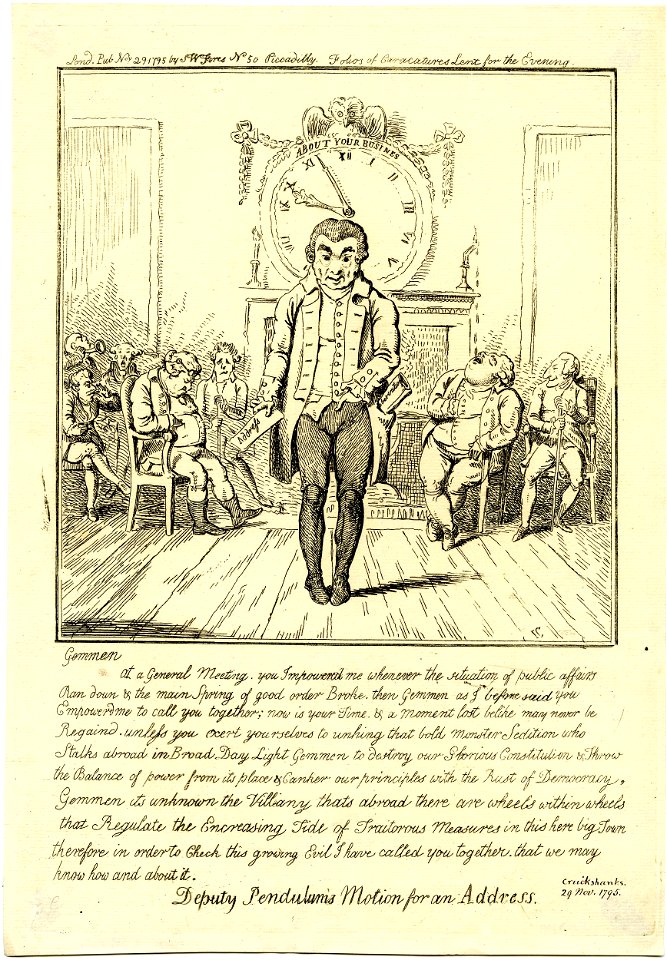 Lond. Pub Nov 29 1795 by SW Fores No 50 Piccadilly. Folios of Caracatures Lent for the Evening
ABOUT YOUR BUSINES
XI XII I II III VI V
X IX VIII
Speech
Gemmen
at a General Meeting. you Impowerd me whenever the situation of public affairs
Ran down & the main Spring of good order Broke. then Gemmen as I before said you
Empowerd me to call you together; now is your Time. & a moment lost belike may never be
Regaind. unless you exert yourselves to unhing that bold monster Sedition who
Stalks abroad in Broad. Day Light Gemmen to destroy our Glorious Constitution & Throw
the Balance of power from its place & Canker our principles with the Rust of Democracy.
Gemmen its unknown the Villany thats abroad there are wheels within wheels
that Regulate the Encreasing Tide of Traitorous Measures in this here big Town
therefore in order to Check this growing Evil I have called you together. that we may
know how and about it.
Deputy Pendulum's Motion for an Address.
Cruikshanks.
29 Nov. 1795.